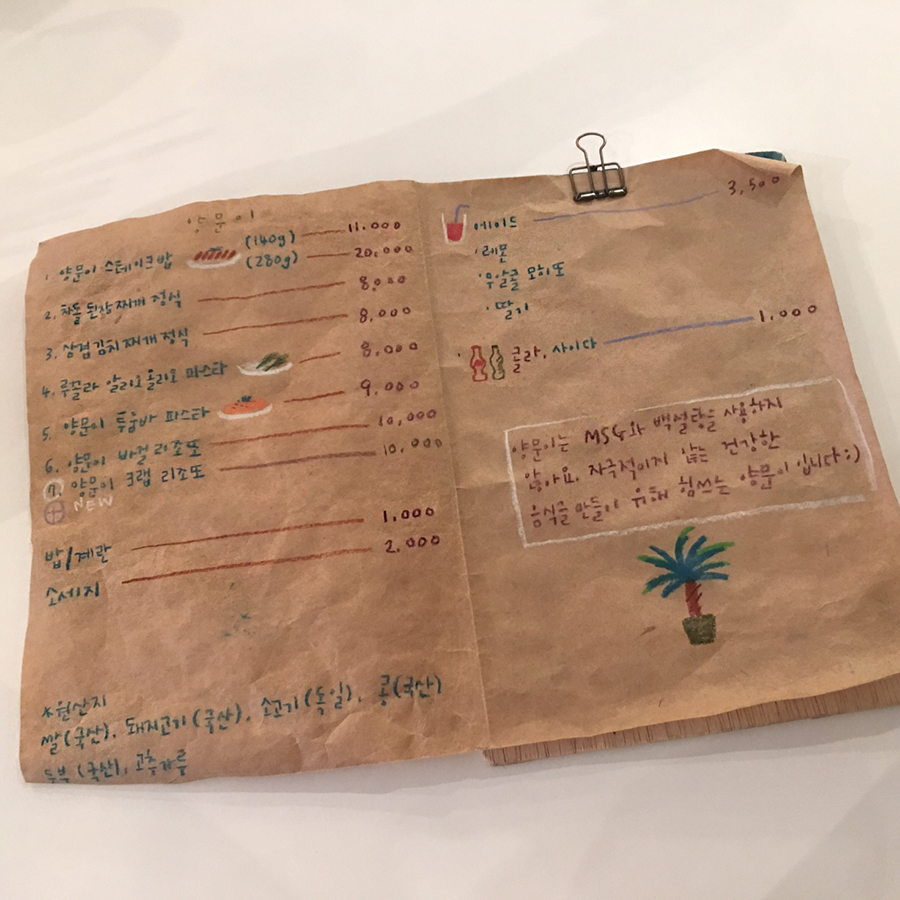 양문이
1. 양문이 스테이크밥 (140g) 11,000
(280g) 20,000
2. 차돌 된장찌개 정식 8,000
3. 삼겹김치찌개 정식 8,000
4. 루꼴라 알리오올리오 파스타 8,000
5. 양문이 투움바 파스타 9,000
6. 양문이 바질 리조또 10,000
7. 양문이 크랩 리조또 10,000
NEW
밥/계란 1,000
소세지 2,000
*원산지
쌀(국산), 돼지고기(국산), 소고기(독일), 콩(국산)
두부(국산), 고추가루
에이드 3,500
·레몬
·우알콜 모히또
·딸기
·콜라, 사이다 1,000
양문이는 MSG와 백설탕을 사용하지
않아요. 자극적이지 않는 건강한
음식을 만들기 위해 힘쓰는 양문이입니다:)